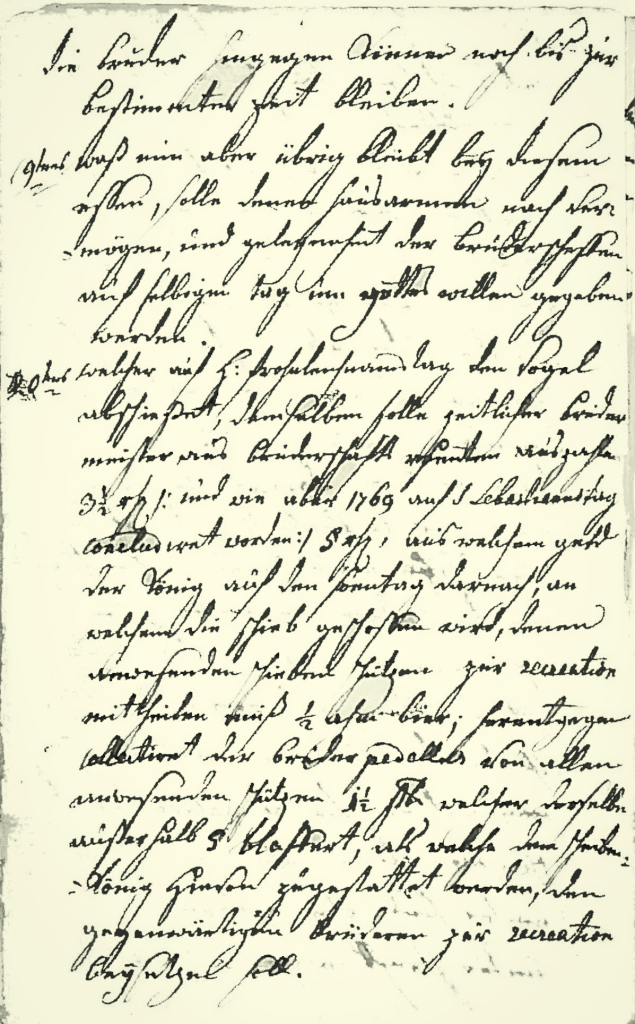 die brüder hingegen können noch bis zur
bestimenten zeit bleiben.
9tens waß nun aber übrig bleibt bey diesem
essen, solle denen haüsarmen nach ver-
mögen, und gelegenheit der brüderschafften
auf selbigen tag um gottes willen gegeben
werden.
10tens welcher auf h: frohnleichnamstag den vogel
abschießet, demselben solle zeitlicher brüder
meister aus brüderschafft renthen auszahlen
3½ rth /: und wie aber 1769 auf S Sebastianustag
concludiret worden :/ 5 rth, aus welchem geld
der König auf den sontag darnach, an
welchem die schieb geschossen wird, denen
anwesenden schieben schützen zur recreation
mittheilen muß ½ ahm bier; herentgegen
collectiret der brüder pedellen von allen
anwesenden schützen 1½ stb welcher derselbe
ausserhalb 5 blaffert, als welche dem scheiben-
König hievon zugestattet werden, den
gegenwärtigen brüderen zür recreation
beysetzen soll.